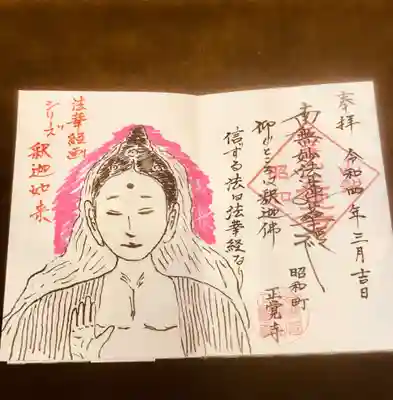 奉拝 令和四年三月吉日
南無妙法蓮華経
昭和町
正覚寺
仰ぐところは釈迦佛
信ずる法は法華経なり
法華経画
シリーズ
釈迦如来